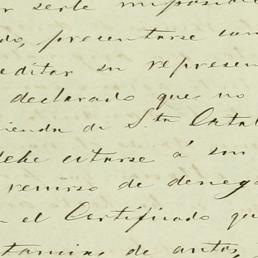 r serle imposib
do, presentarse con
editar su represen
declarado que no
ienda de Sta Catal
debe citarse á su
recurso de deneg
n el Certificado qu
tamino de autos,